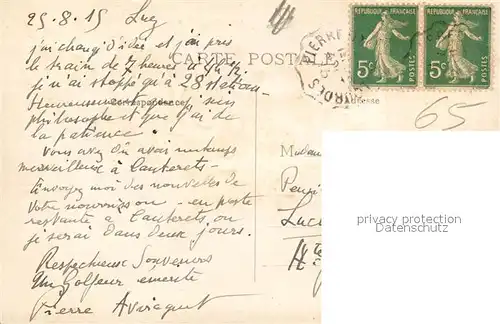 25.8.15 Luz
j'ai changé d'idée et j'ai pris
le train de 7 heures
je n'ai stoppé qu'à 28 stations
Heureusement suis
philosophe et que j'ai de
la patience.
Vous avez dû avoir un temps
merveilleux à Cauterets.
Envoyez moi des nouvelles de
votre nourrisson - en poste
restante à Cauterets, où
je serai dans deux jours.
Respectueux Souvenirs
Un Golfeur émérite
Pierre
CARTE POSTALE
Correspondance
RÉPUBLIQUE FRANÇAISE
5c POSTES
RÉPUBLIQUE FRANÇAISE
5c POSTES
PIERREF
65
Mada
Pensi
Luc
privacy protection